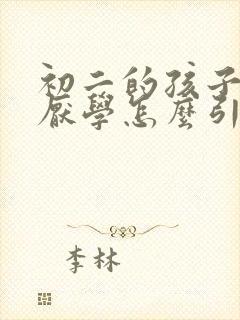 初二的孩子
厭學怎麼引
李林